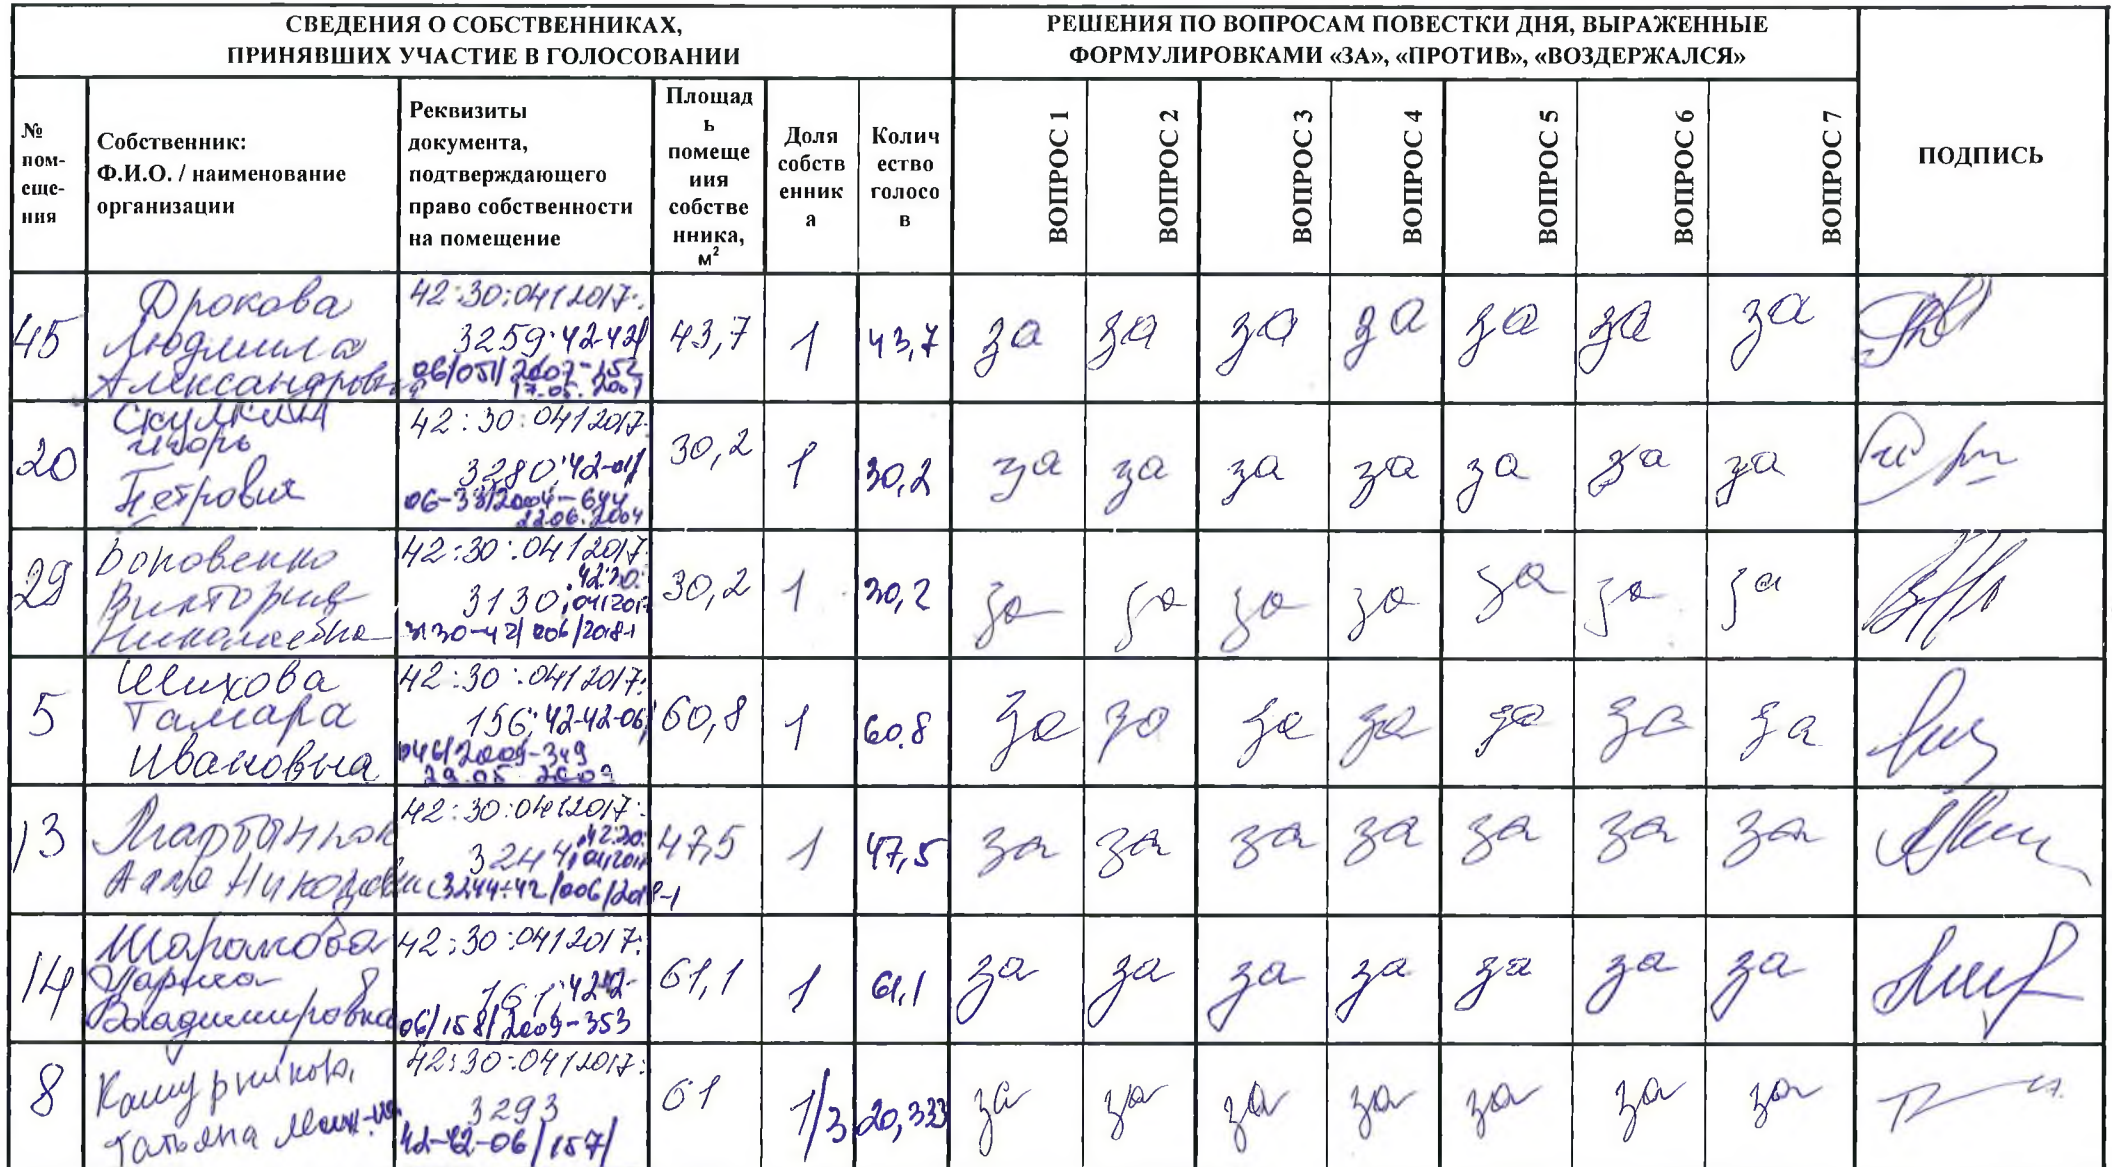 СВЕДЕНИЯ О СОБСТВЕННИКАХ,
ПРИНЯВШИХ УЧАСТИЕ В ГОЛОСОВАНИИ
РЕШЕНИЯ ПО ВОПРОСАМ ПОВЕСТКИ ДНЯ, ВЫРАЖЕННЫЕ
ФОРМУЛИРОВКАМИ «ЗА», «ПРОТИВ», «ВОЗДЕРЖАЛСЯ»
№
пом-
еще-
ния
Собственник:
Ф.И.О. / наименование
организации
Реквизиты
документа,
подтверждающего
право собственности
на помещение
Площад
ь
помеще
ния
собстве
нника,
м²
Доля
собств
енник
а
Колич
ество
голосо
в
ВОПРОС 1
ВОПРОС 2
ВОПРОС 3
ВОПРОС 4
ВОПРОС 5
ВОПРОС 6
ВОПРОС 7
ПОДПИСЬ
45
Дрокова
Людмила
Александровна
42:30:0412017:
3259; 42-42/
06/051/2007-152
17.05.2007
43,7
1
43,7
за за за за за за за
20
Скулкин
Игорь
Петрович
42:30:0412017:
3280; 42-01/
06-38/2004-644
22.06.2004
30,2
1
30,2
за за за за за за за
29
Виктория
Николаевна
42:30:0412017:
3130; 42:30:
0412017:
3130-42/006/2018-1
30,2
1
30,2
за за за за за за за
5
Шихова
Тамара
Ивановна
42:30:0412017:
156; 42-42-06/
046/2009-349
29.05.2009
60,8
1
60.8
за за за за за за за
13
Алла Николаевна
42:30:0412017:
3244; 42:30:
0412017:
3244-42/006/2018-1
47,5
1
47,5
за за за за за за за
14
Лариса
Владимировна
42:30:0412017:
161; 42-42-
06/158/2009-353
61,1
1
61,1
за за за за за за за
8
Татьяна
42:30:0412017:
3293
42-42-06/157/
61
1/3
20,333
за за за за за за за